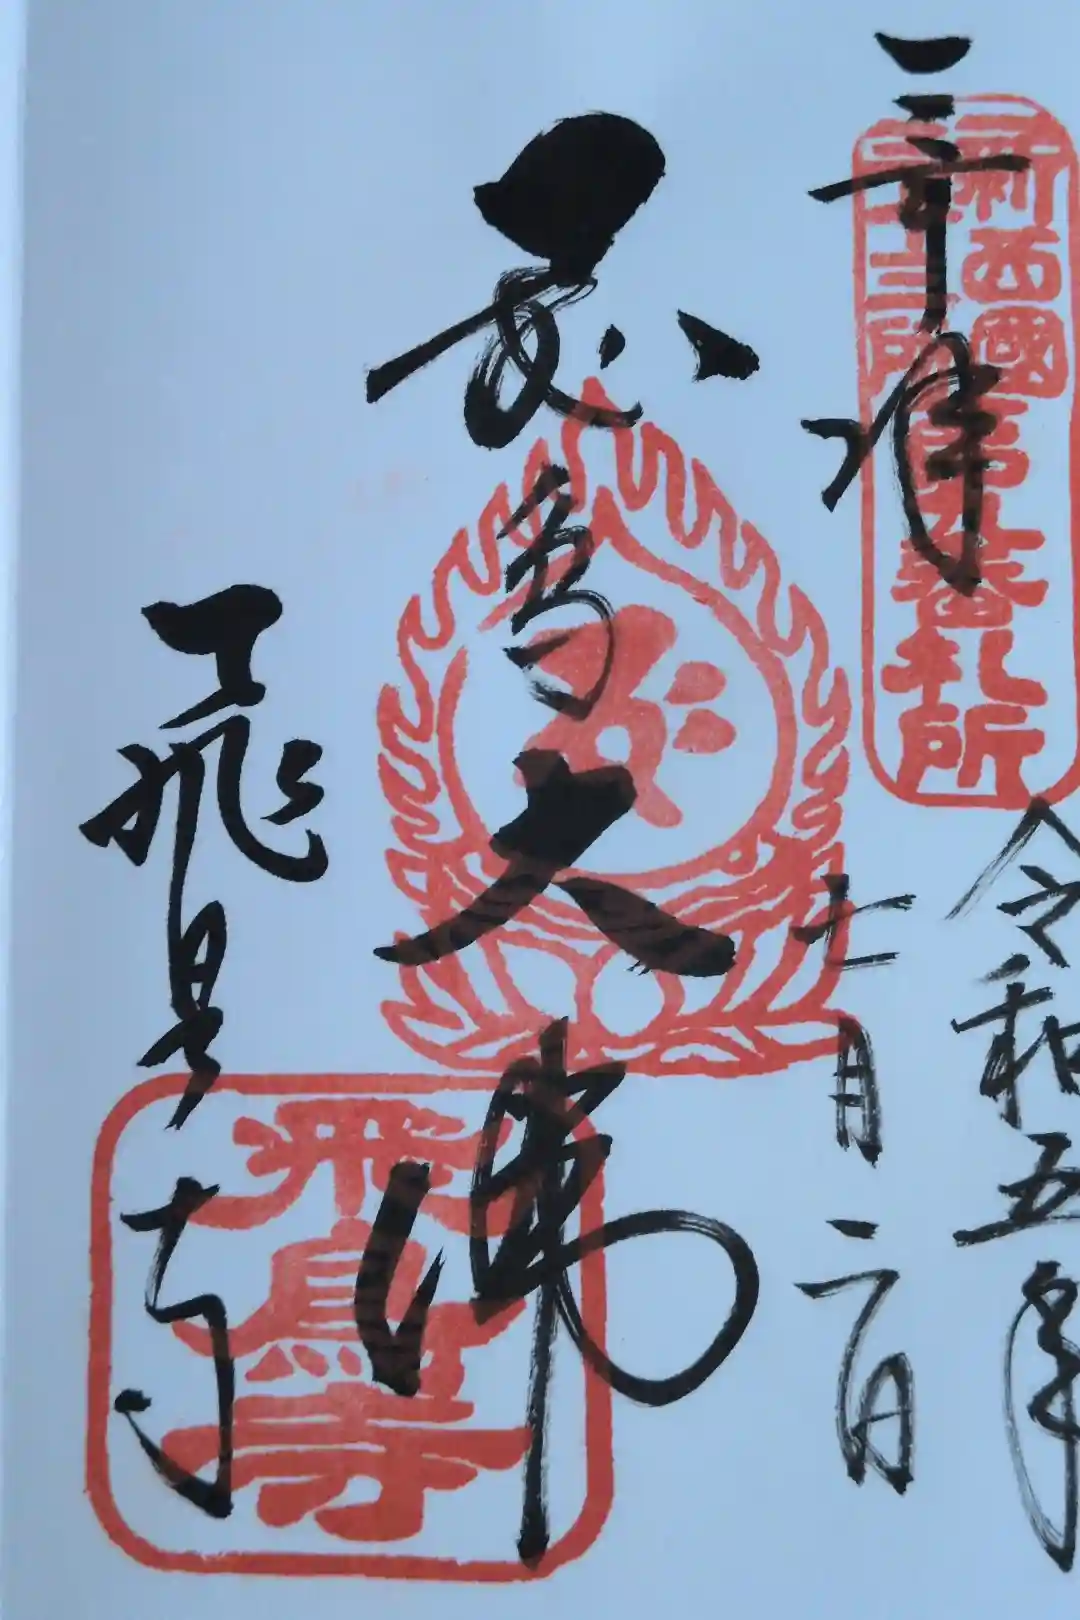 奉拝
新西國
三十三所
第九番札所
令和五年
十一月二日
飛鳥大佛
飛鳥寺
飛鳥寺